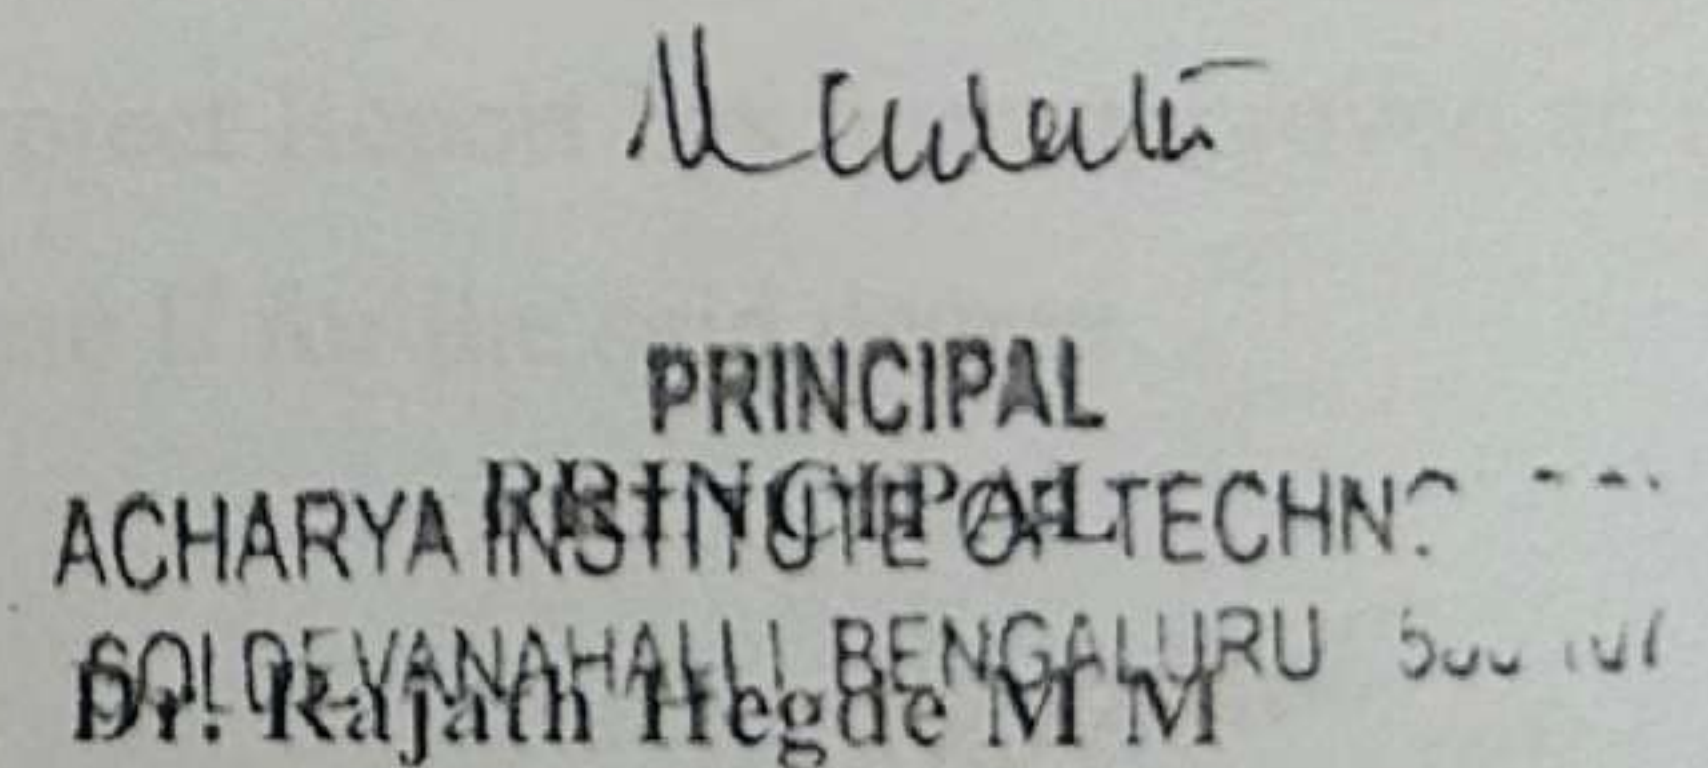 PRINCIPAL
PRINCIPAL
ACHARYA INSTITUTE OF TECHN
SOLDEVANAHALLI BENGALURU
Dr. Rajath Hegde M M